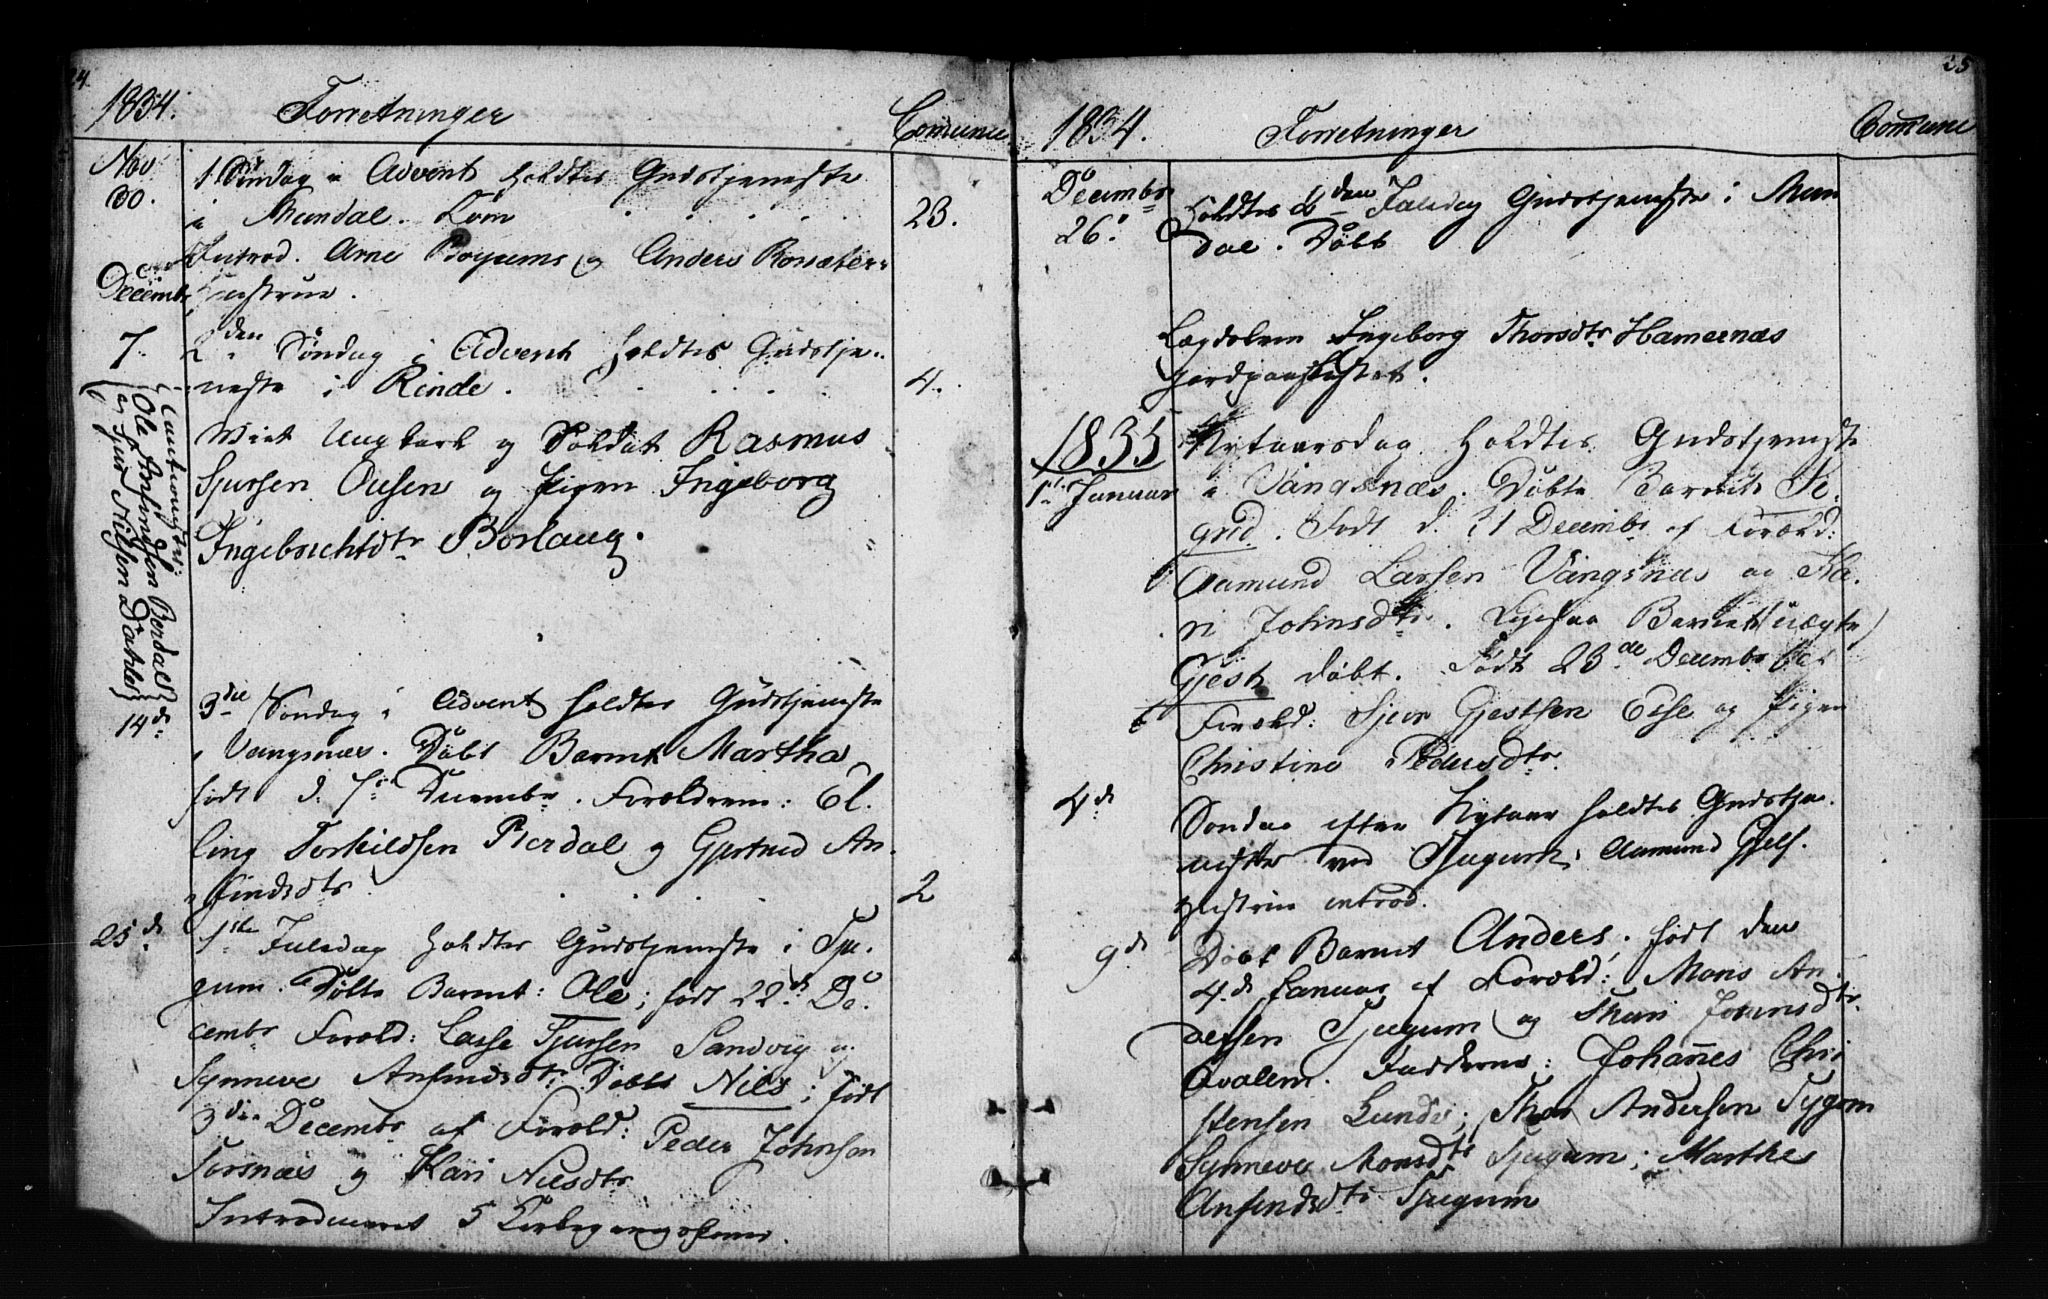 1834. Forretninger Comune
Nov 30. 1 Søndag i Advent holdtes Gudstjeneste
i Mundal. Com . . . . 23.
Introd. Arne Bøyums og Anders Rørsæters
Hustrue.
Decembr
7. 2den Søndag i Advent holdtes Gudstje-
neste i Rinde. . . . . 4.
Viet Ungkarl og Soldat Rasmus
Sjursen Ousen og Pigen Ingeborg
Ingebrichtdtr Borlaug.
Cautionister:
Ole Anfindsen Berdal
og Sjur Nilsen Dahle
14d. 3die Søndag i Advent holdtes Gudstjeneste
i Vangsnæs. Døbt Barnet Martha
født d. 7de Decembr. Forældrene: El-
ling Torkildsen Pierdal og Gjertrud An-
findsdtr. . . . . 2
25d. 1ste Juledag holdtes Gudstjeneste i Tju-
gum. Døbte Barnet: Ole; født 22d. De-
cembr Foræld: Lasse Sjursen Sandvig og
Synneve Anfindsdtr. Døbt Nils; født
3die Decembr af Foræld: Peder Johnsen
Torsnæs og Kari Nilsdtr
Introduceret 5 Kirkegangskoner.
35
1834. Forretninger Comune
Decembr
26. Holdtes 2den Juledag Gudstjeneste i Mun
dal. Døbt
Lægdslem Ingeborg Thorsdtr Hamernæs
jordpaakastet.
1835
1ste Januar Nytaarsdag holdtes Gudstjeneste
i Vangsnæs. Døbte Barnet Si-
grid. Født d. 21 Decembr af Foræld:
Aamund Larsen Vangsnæs og Ka-
ri Johnsdtr. Ligesaa Barnet (uægte)
Gjest døbt. Født 23de Decembr af
Foræld: Sjur Gjestsen Eise og Pigen
Christine Pedersdtr.
4d. Søndag efter Nytaar holdtes Gudstje-
neste ved Tjugum; Aamund Gjels-
Hustrue introd.
9d. Døbt Barnet Anders, født den
4.d Januar af Foræld: Mons An-
dersen Tjugum og Mari Johnsdtr
Qvalem. Fadderne: Johannes Chri
stensen Lunde; Thor Andersen Tygum
Synneve Monsdtr Tjugum; Marthe
Anfindsdtr Tjugum